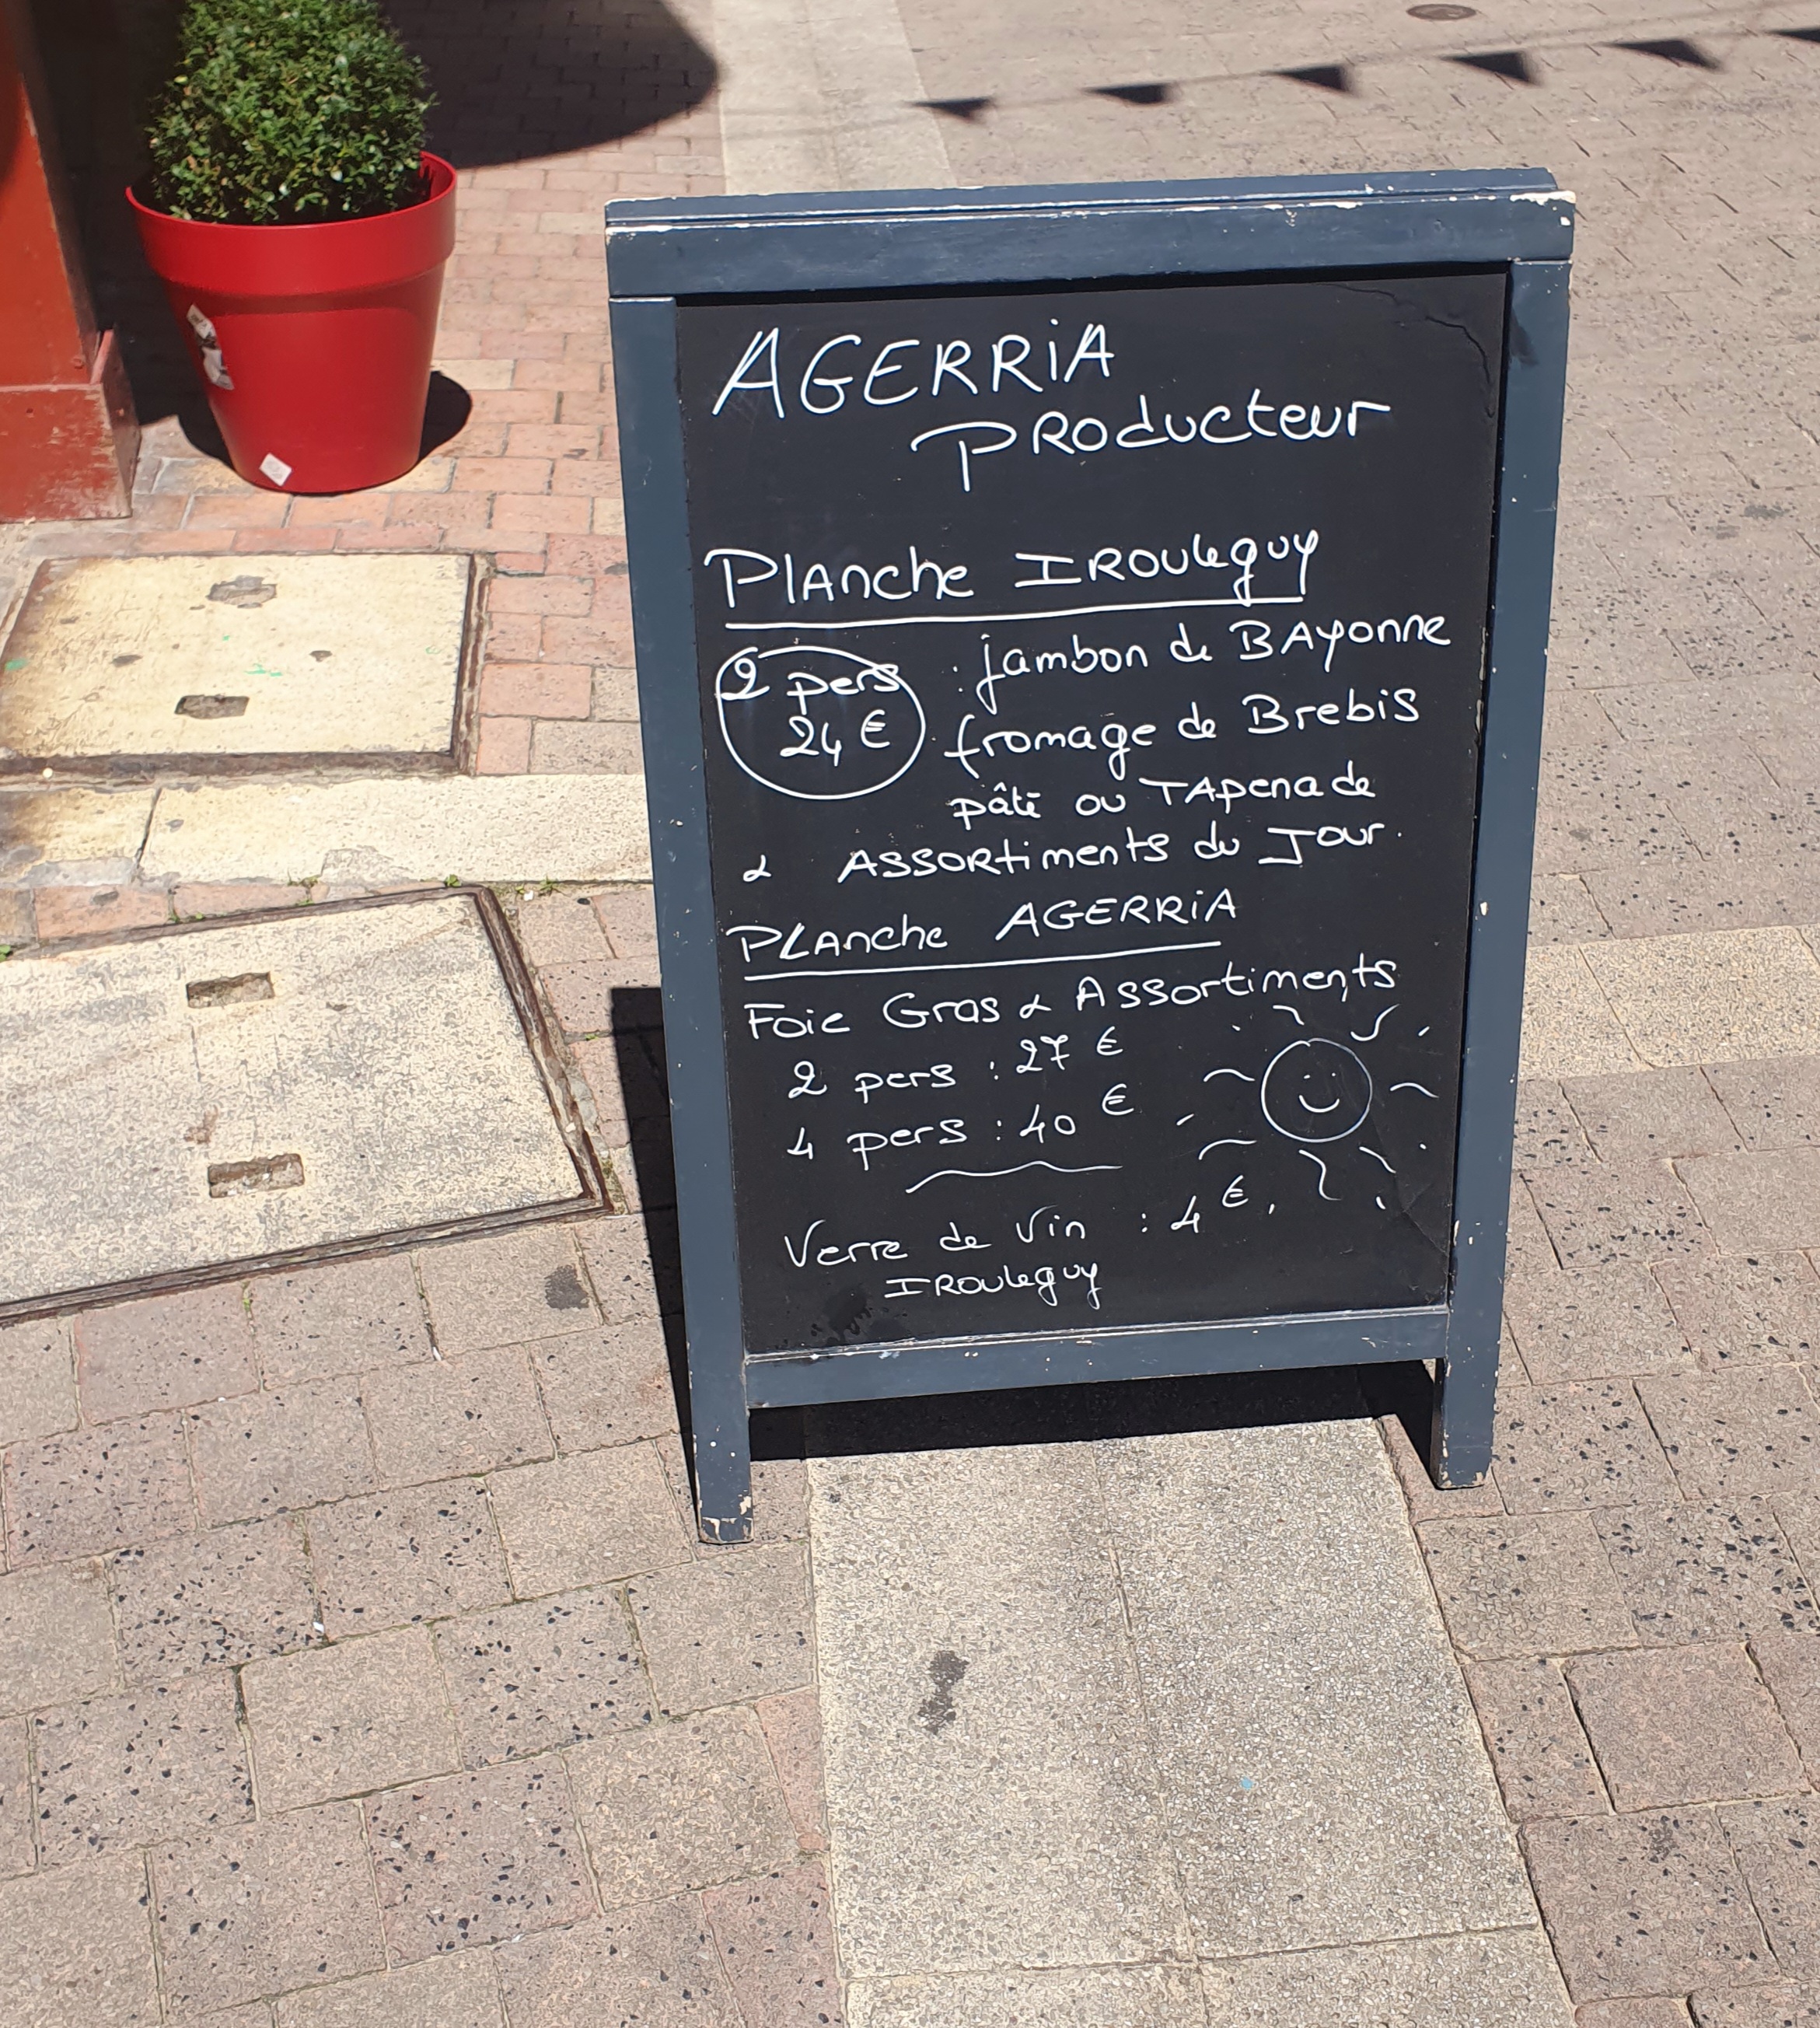 AGERRiA
PRODucteur
Planche IROUleguy
2 pers : jambon de BAyonne
24 € . fromage de Brebis
pâté ou TApenade
& ASSORtiments du Jour.
PLAnche AGERRiA
Foie Gras & Assortiments
2 pers : 27 €
4 pers : 40 €
Verre de Vin : 4 €.
IROUleguy